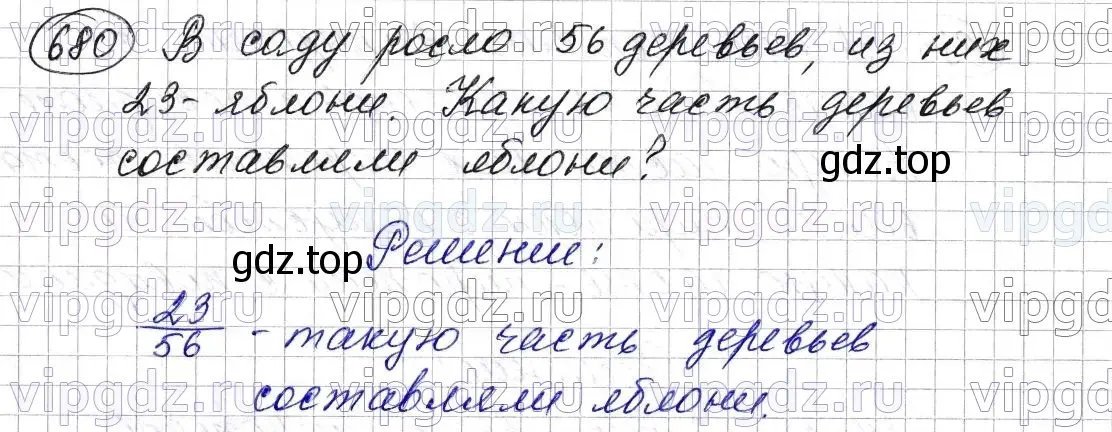 680 В саду росло 56 деревьев, из них
23 - яблони. Какую часть деревьев
составляли яблони?
gdz.top
Решение:
gdz.top
23/56 - такую часть деревьев
составляли яблони.
vipgdz.ru